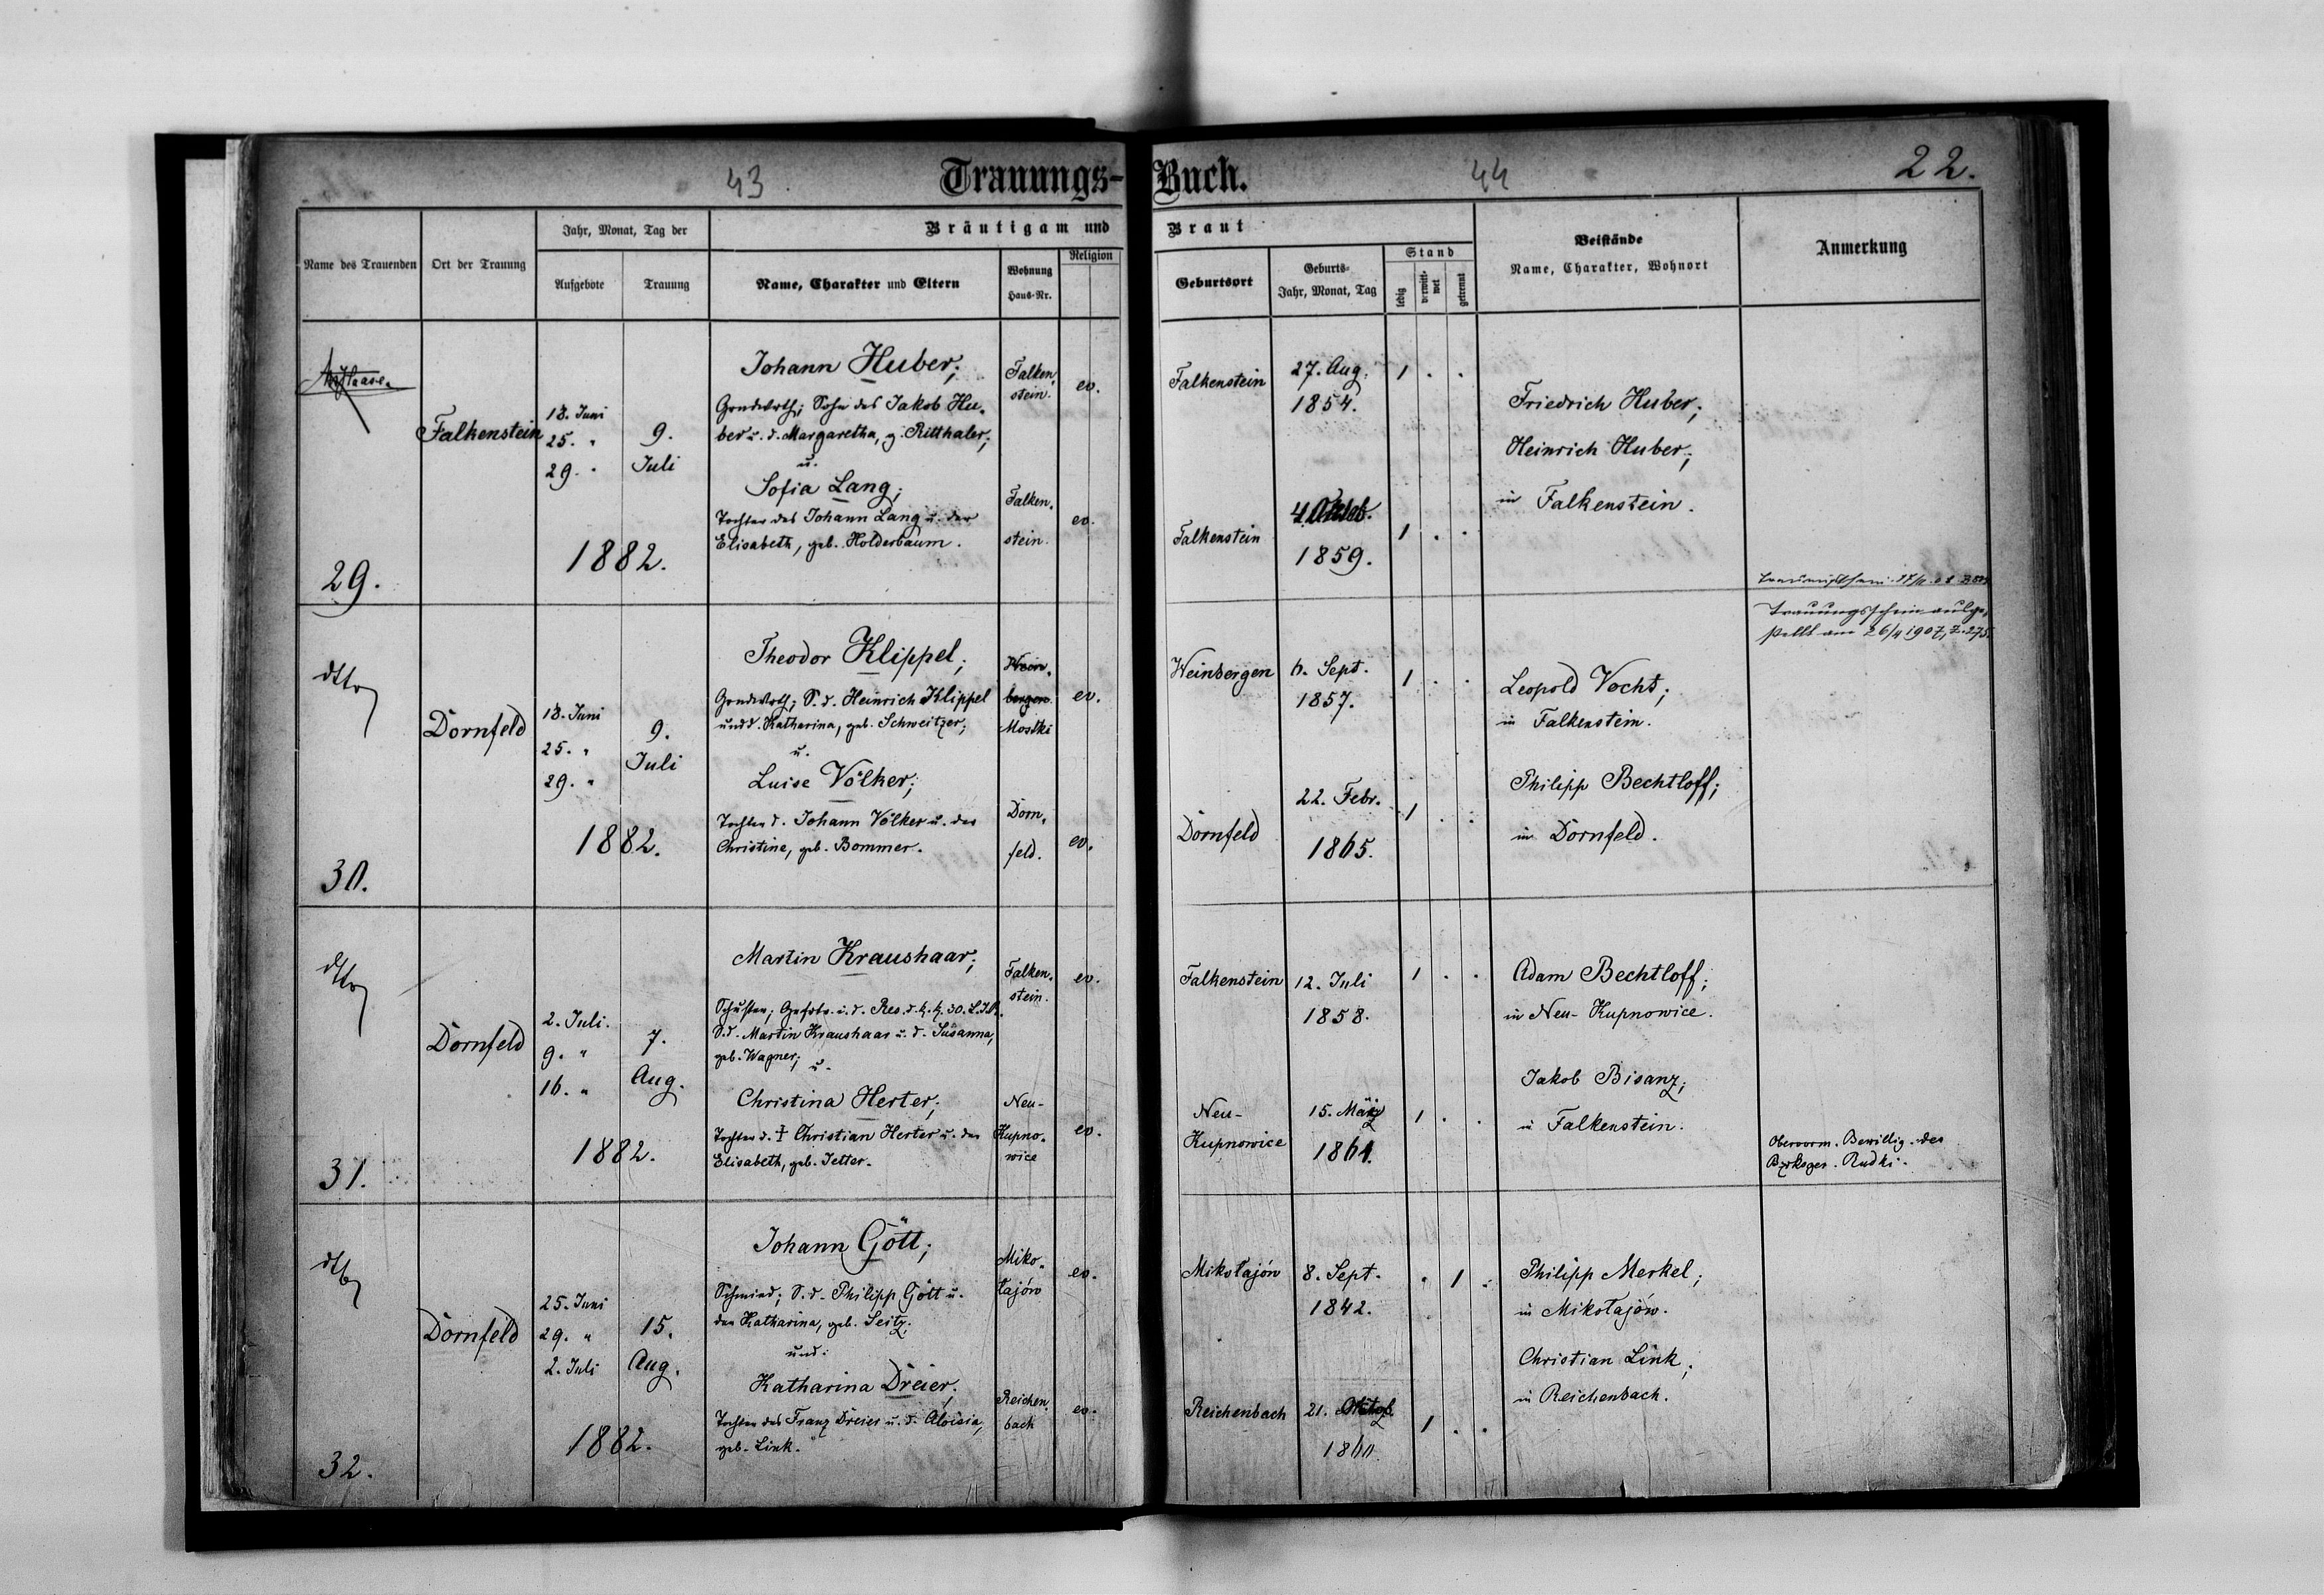 43
Trauungs-Buch.
44
22.
Name des Trauenden
Ort der Trauung
Jahr, Monat, Tag der
Aufgebote
Trauung
Bräutigam und Braut
Name, Charakter und Eltern
Wohnung
Haus-Nr.
Religion
Geburtsort
Geburts-
Jahr, Monat, Tag
Stand
ledig
verwitt-
wet
getrennt
Beistände
Name, Charakter, Wohnort
Anmerkung
29.
Falkenstein
18. Juni
25. "
29. "
9.
Juli
1882.
Johann Huber;
Grndwrth; Sohn des Jakob Hu-
ber u. d. Margaretha, g. Ritthaler;
u.
Sofia Lang;
Tochter des Johann Lang u. der
Elisabeth, geb. Holderbaum.
Falken-
stein.
ev.
Falken-
stein.
ev.
Falkenstein
27. Aug.
1854.
1 . .
Falkenstein
4. Oktob.
1859.
1 . .
Friedrich Huber;
Heinrich Huber;
in Falkenstein.
30.
dtto
Dornfeld
18. Juni
25. "
29. "
9.
Juli
1882.
Theodor Klippel;
Grndwrth; S. d. Heinrich Klippel
und d. Katharina, geb. Schweitzer;
u.
Luise Völker;
Tochter d. Johann Völker u. der
Christine, geb. Bommer.
Wein-
bergen
Mostki
ev.
Dorn-
feld.
ev.
Weinbergen
6. Sept.
1857.
1 . .
Dornfeld
22. Febr.
1865.
1 . .
Leopold Vocht;
in Falkenstein.
Philipp Bechtloff;
in Dornfeld.
Trauungsschein ausge-
stellt am 26/4 1907, Z. 275.
31.
dtto
Dornfeld
2. Juli.
9. "
16. "
7.
Aug.
1882.
Martin Kraushaar;
Schuster; Gefrtr. i. d. Res. d. k. k. 30. L.I.R.
S. d. Martin Kraushaar u. d. Susanna,
geb. Wagner;
u.
Christina Herter;
Tochter d. † Christian Herter u. der
Elisabeth, geb. Jetter.
Falken-
stein.
ev.
Neu-
Kupno-
wice
ev.
Falkenstein
12. Juli
1858.
1 . .
Neu-
Kupnowice
15. März
1861.
1 . .
Adam Bechtloff;
in Neu-Kupnowice.
Jakob Bisanz;
in Falkenstein.
Obervorm. Bewillig. des
Bzrksger. Rudki.
32.
dtto
Dornfeld
25. Juni
29. "
2. Juli
15.
Aug.
1882.
Johann Gött;
Schmied; S. d. Philipp Gött u.
der Katharina, geb. Seitz;
und:
Katharina Dreier;
Tochter des Franz Dreier u. d. Aloisia,
geb. Link.
Miko-
łajów
ev.
Reichen-
bach
ev.
Mikołajów
8. Sept.
1842.
. 1 .
Reichenbach
21.
1860.
1 . .
Philipp Merkel;
in Mikołajów.
Christian Link;
in Reichenbach.